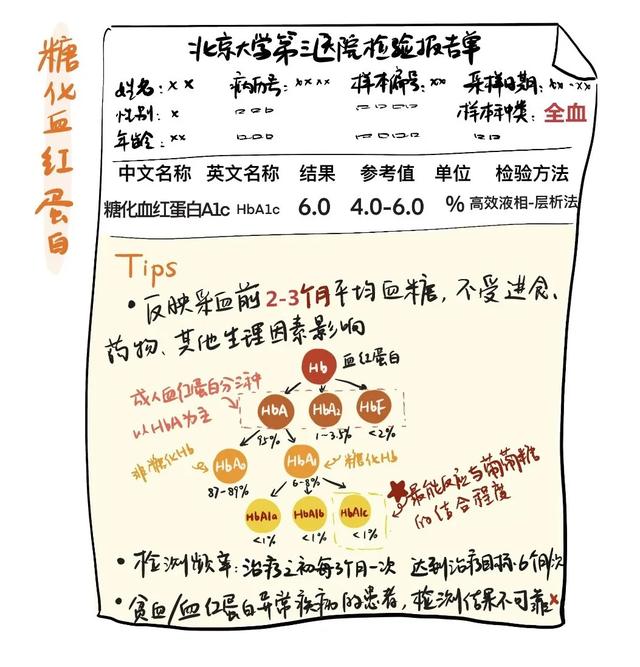 糖化血红蛋白
北京大学第三医院检验报告单
姓名：x x 病历号：xxxx 样本编号：xx 采样日期：xx-xx
性别：x 样本种类：全血
年龄：xx
中文名称 英文名称 结果 参考值 单位 检验方法
糖化血红蛋白A1c HbA1c 6.0 4.0-6.0 % 高效液相-层析法
Tips
• 反映采血前2-3个月平均血糖，不受进食、
药物、其他生理因素影响
Hb 血红蛋白
成人血红蛋白分三种
以HbA为主
HbA HbA2 HbF
95% 1-3.5% <2%
非糖化Hb HbA0 HbA1 糖化Hb
87-89% 6-8%
★最能反应与葡萄糖
的结合程度
HbA1a HbA1b HbA1c
<1% <1% <1%
• 检测频率：治疗之初每3个月一次 达到治疗目标：6个月/次
• 贫血/血红蛋白异常疾病的患者，检测结果不可靠×